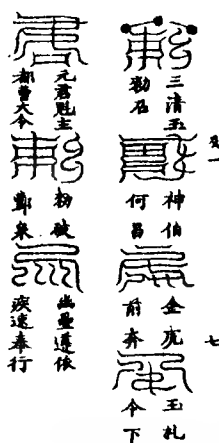 一
七
三清玉
勑召
神伯
何昌
金虎
前奔
玉札
令下
元君魁主
都曹大令
勑破
鄷泉
幽壘遵依
疾速奉行